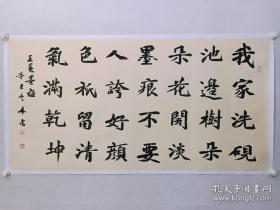 我家洗硯
池邊樹朵
朵花開淡
墨痕不要
人誇好顏
色祇留清
氣滿乾坤
王冕墨梅
孔夫子旧书网